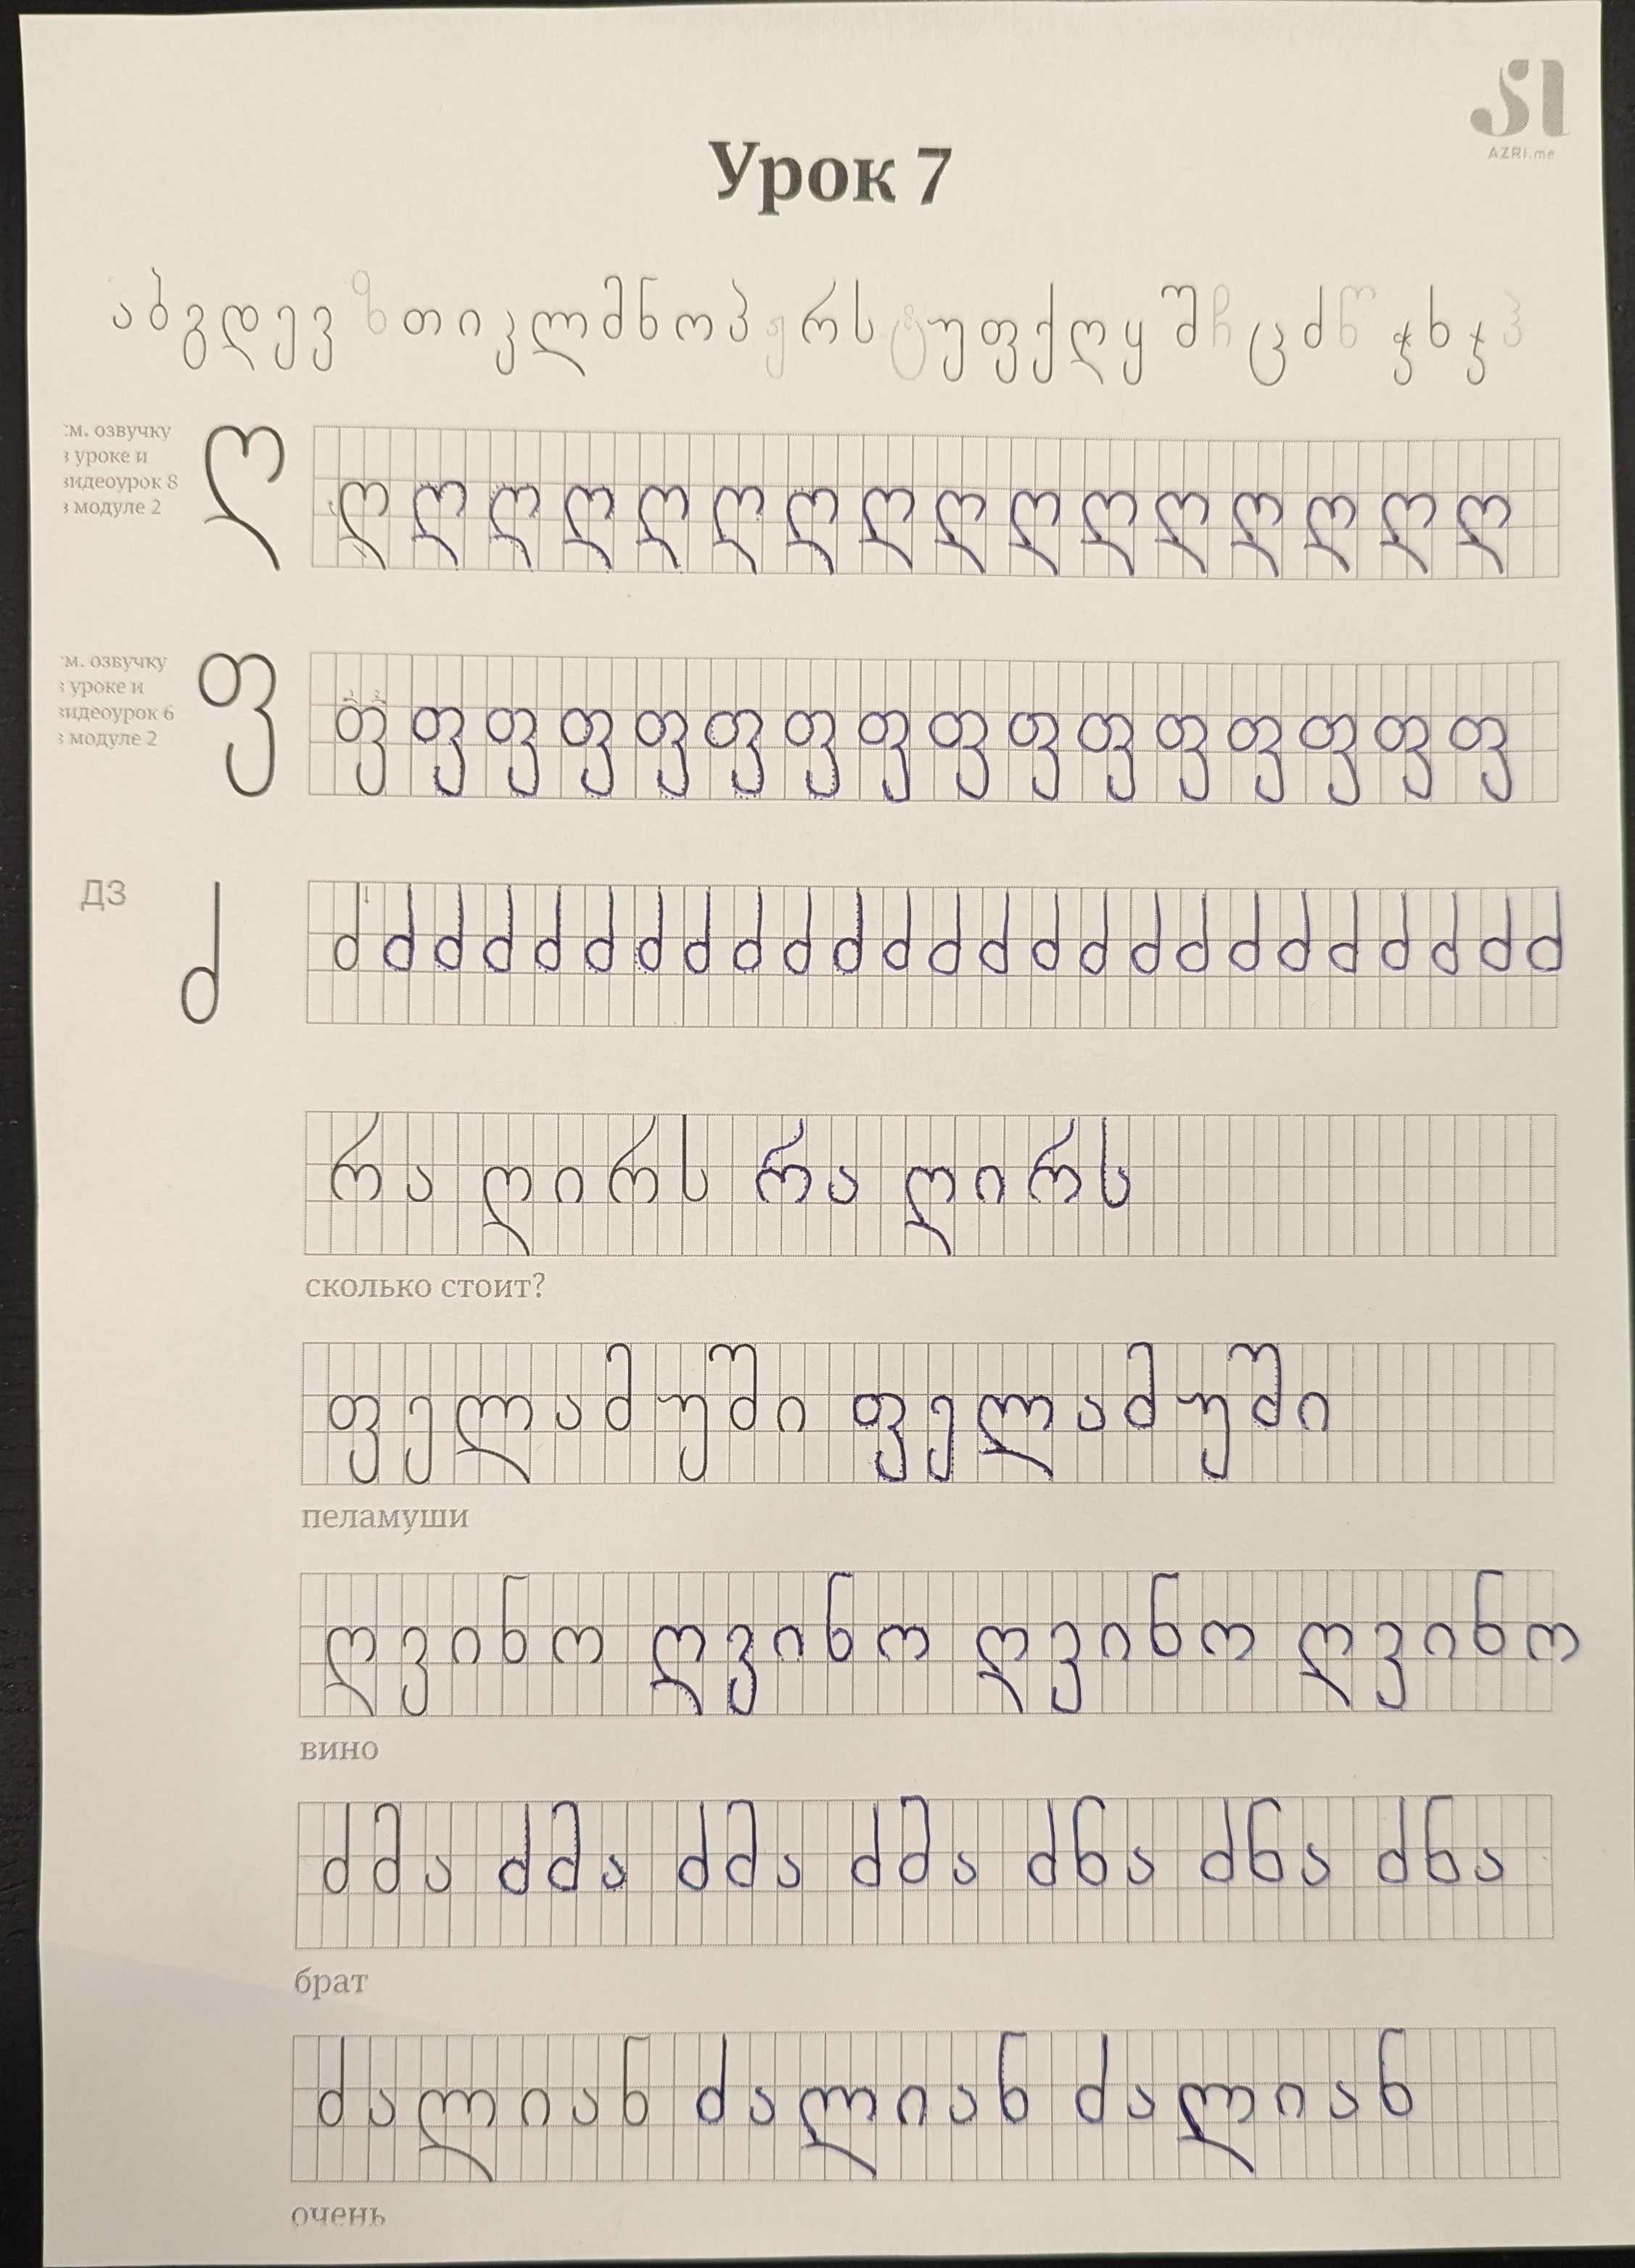 AZRI.me
Урок 7
ა ბ გ დ ე ვ ზ თ ი კ ლ მ ნ ო პ ჟ რ ს ტ უ ფ ქ ღ ყ შ ჩ ც ძ წ ჭ ხ ჯ ჰ
:м. озвучку
з уроке и
зидеоурок 8
з модуле 2
ღ
ღ ღ ღ ღ ღ ღ ღ ღ ღ ღ ღ ღ ღ ღ ღ ღ
:м. озвучку
з уроке и
зидеоурок 6
з модуле 2
ფ
ფ ფ ფ ფ ფ ფ ფ ფ ფ ფ ფ ფ ფ ფ ფ ფ
ДЗ
ძ
ძ ძ ძ ძ ძ ძ ძ ძ ძ ძ ძ ძ ძ ძ ძ ძ ძ ძ ძ ძ ძ ძ ძ ძ ძ
რა ღირს რა ღირს
сколько стоит?
ფელამუში ფელამუში
пеламуши
ღვინო ღვინო ღვინო ღვინო
вино
ძმა ძმა ძმა ძმა ძნა ძნა ძნა
брат
ძალიან ძალიან ძალიან
очень